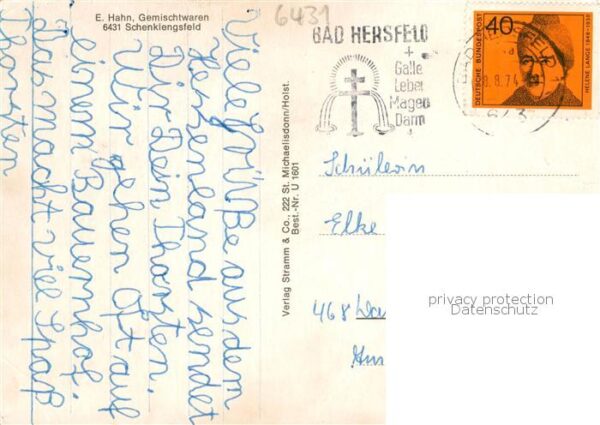 E. Hahn, Gemischtwaren
6431 Schenklengsfeld
6431
Viele Grüße aus dem
Hessenland sendet
Dir Dein Thorsten.
Wir gehen oft auf
einem Bauernhof.
Das macht viel Spaß
Thorsten
Verlag Stramm & Co., 222 St. Michaelisdonn/Holst.
Best.-Nr. U 1601
BAD HERSFELD
Galle
Leber
Magen
Darm
8.74
DEUTSCHE BUNDESPOST
40
HELENE LANGE 1848-1930
Schülerin
Elke
468
privacy protection
Datenschutz